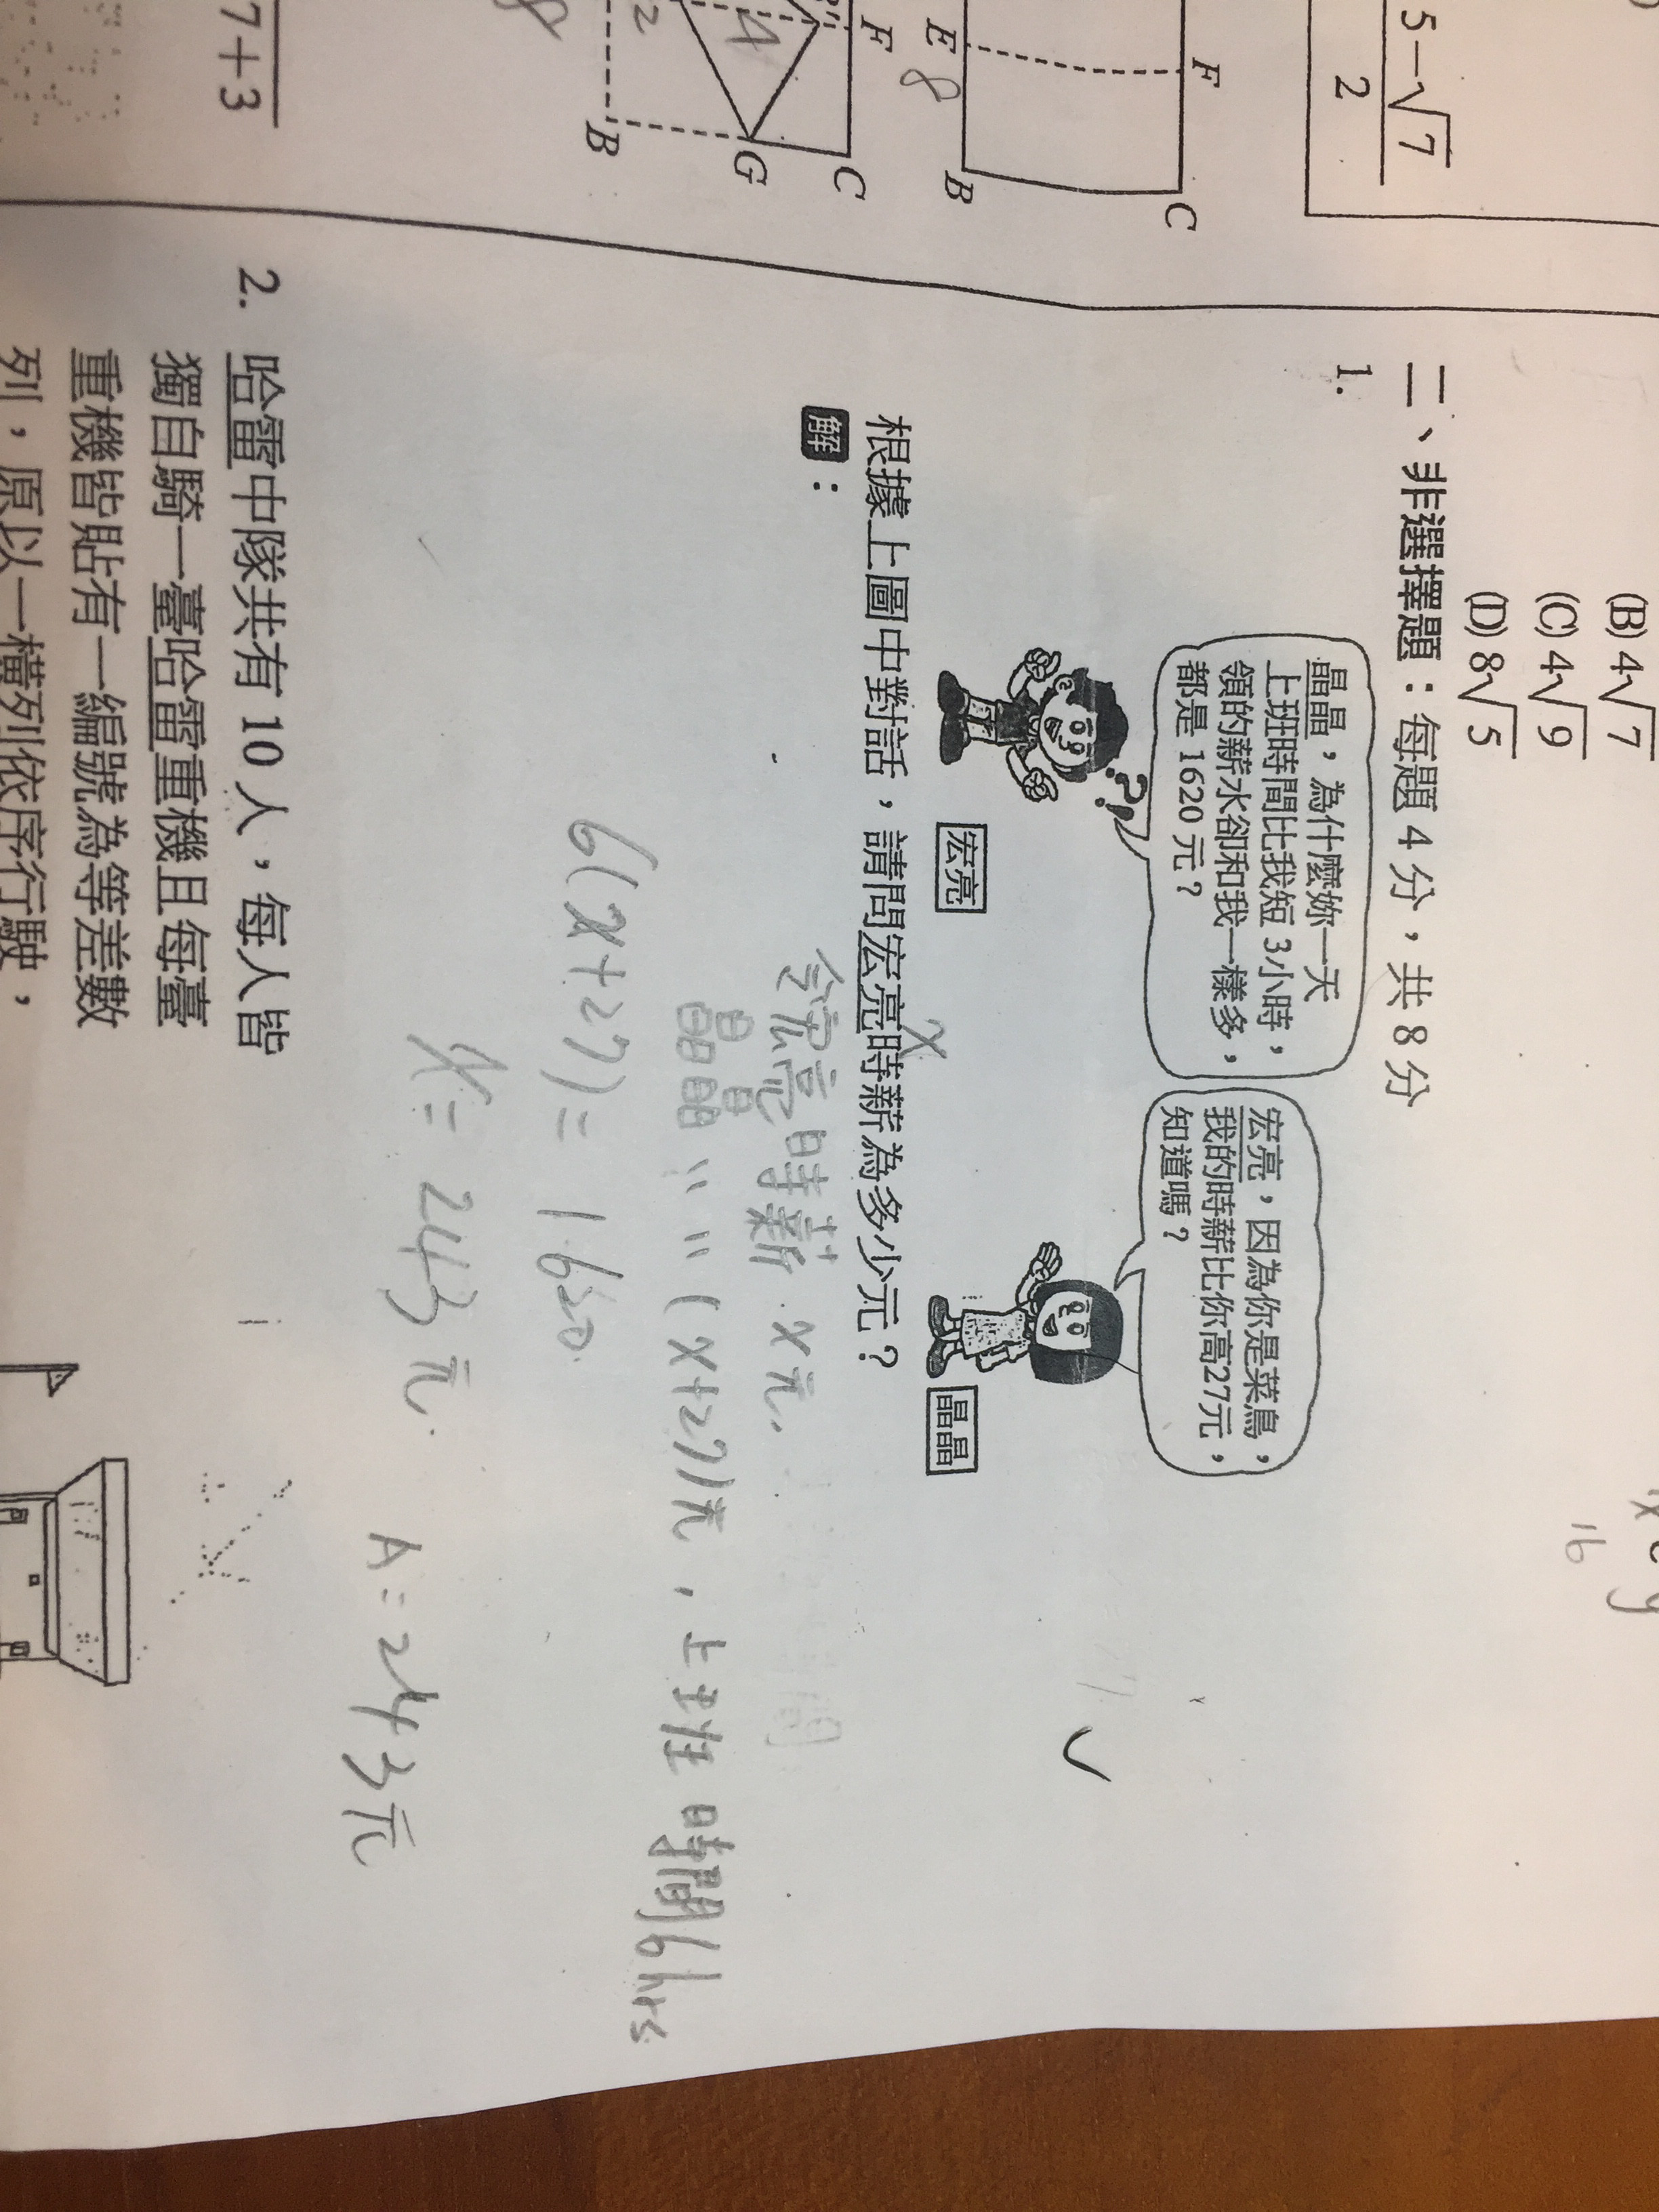 5−√7
2
F
C
E
8
B
F
C
4
G
2
B
8
7+3
(B) 4√7
(C) 4√9
(D) 8√5
16
y
二、非選擇題：每題 4 分，共 8 分
1.
晶晶，為什麼妳一天
上班時間比我短 3小時，
領的薪水卻和我一樣多，
都是 1620 元？
宏亮，因為你是菜鳥，
我的時薪比你高27元，
知道嗎？
宏亮
晶晶
根據上圖中對話，請問宏亮時薪為多少元？
x
解：
令宏亮時薪 x元.
晶晶 〃 〃 (x+27)元，上班時間6hrs
6(x+27)=1620
x=243元.
A=243元
2. 哈雷中隊共有 10 人，每人皆
獨自騎一臺哈雷重機且每臺
重機皆貼有一編號為等差數
列，原以一橫列依序行駛，